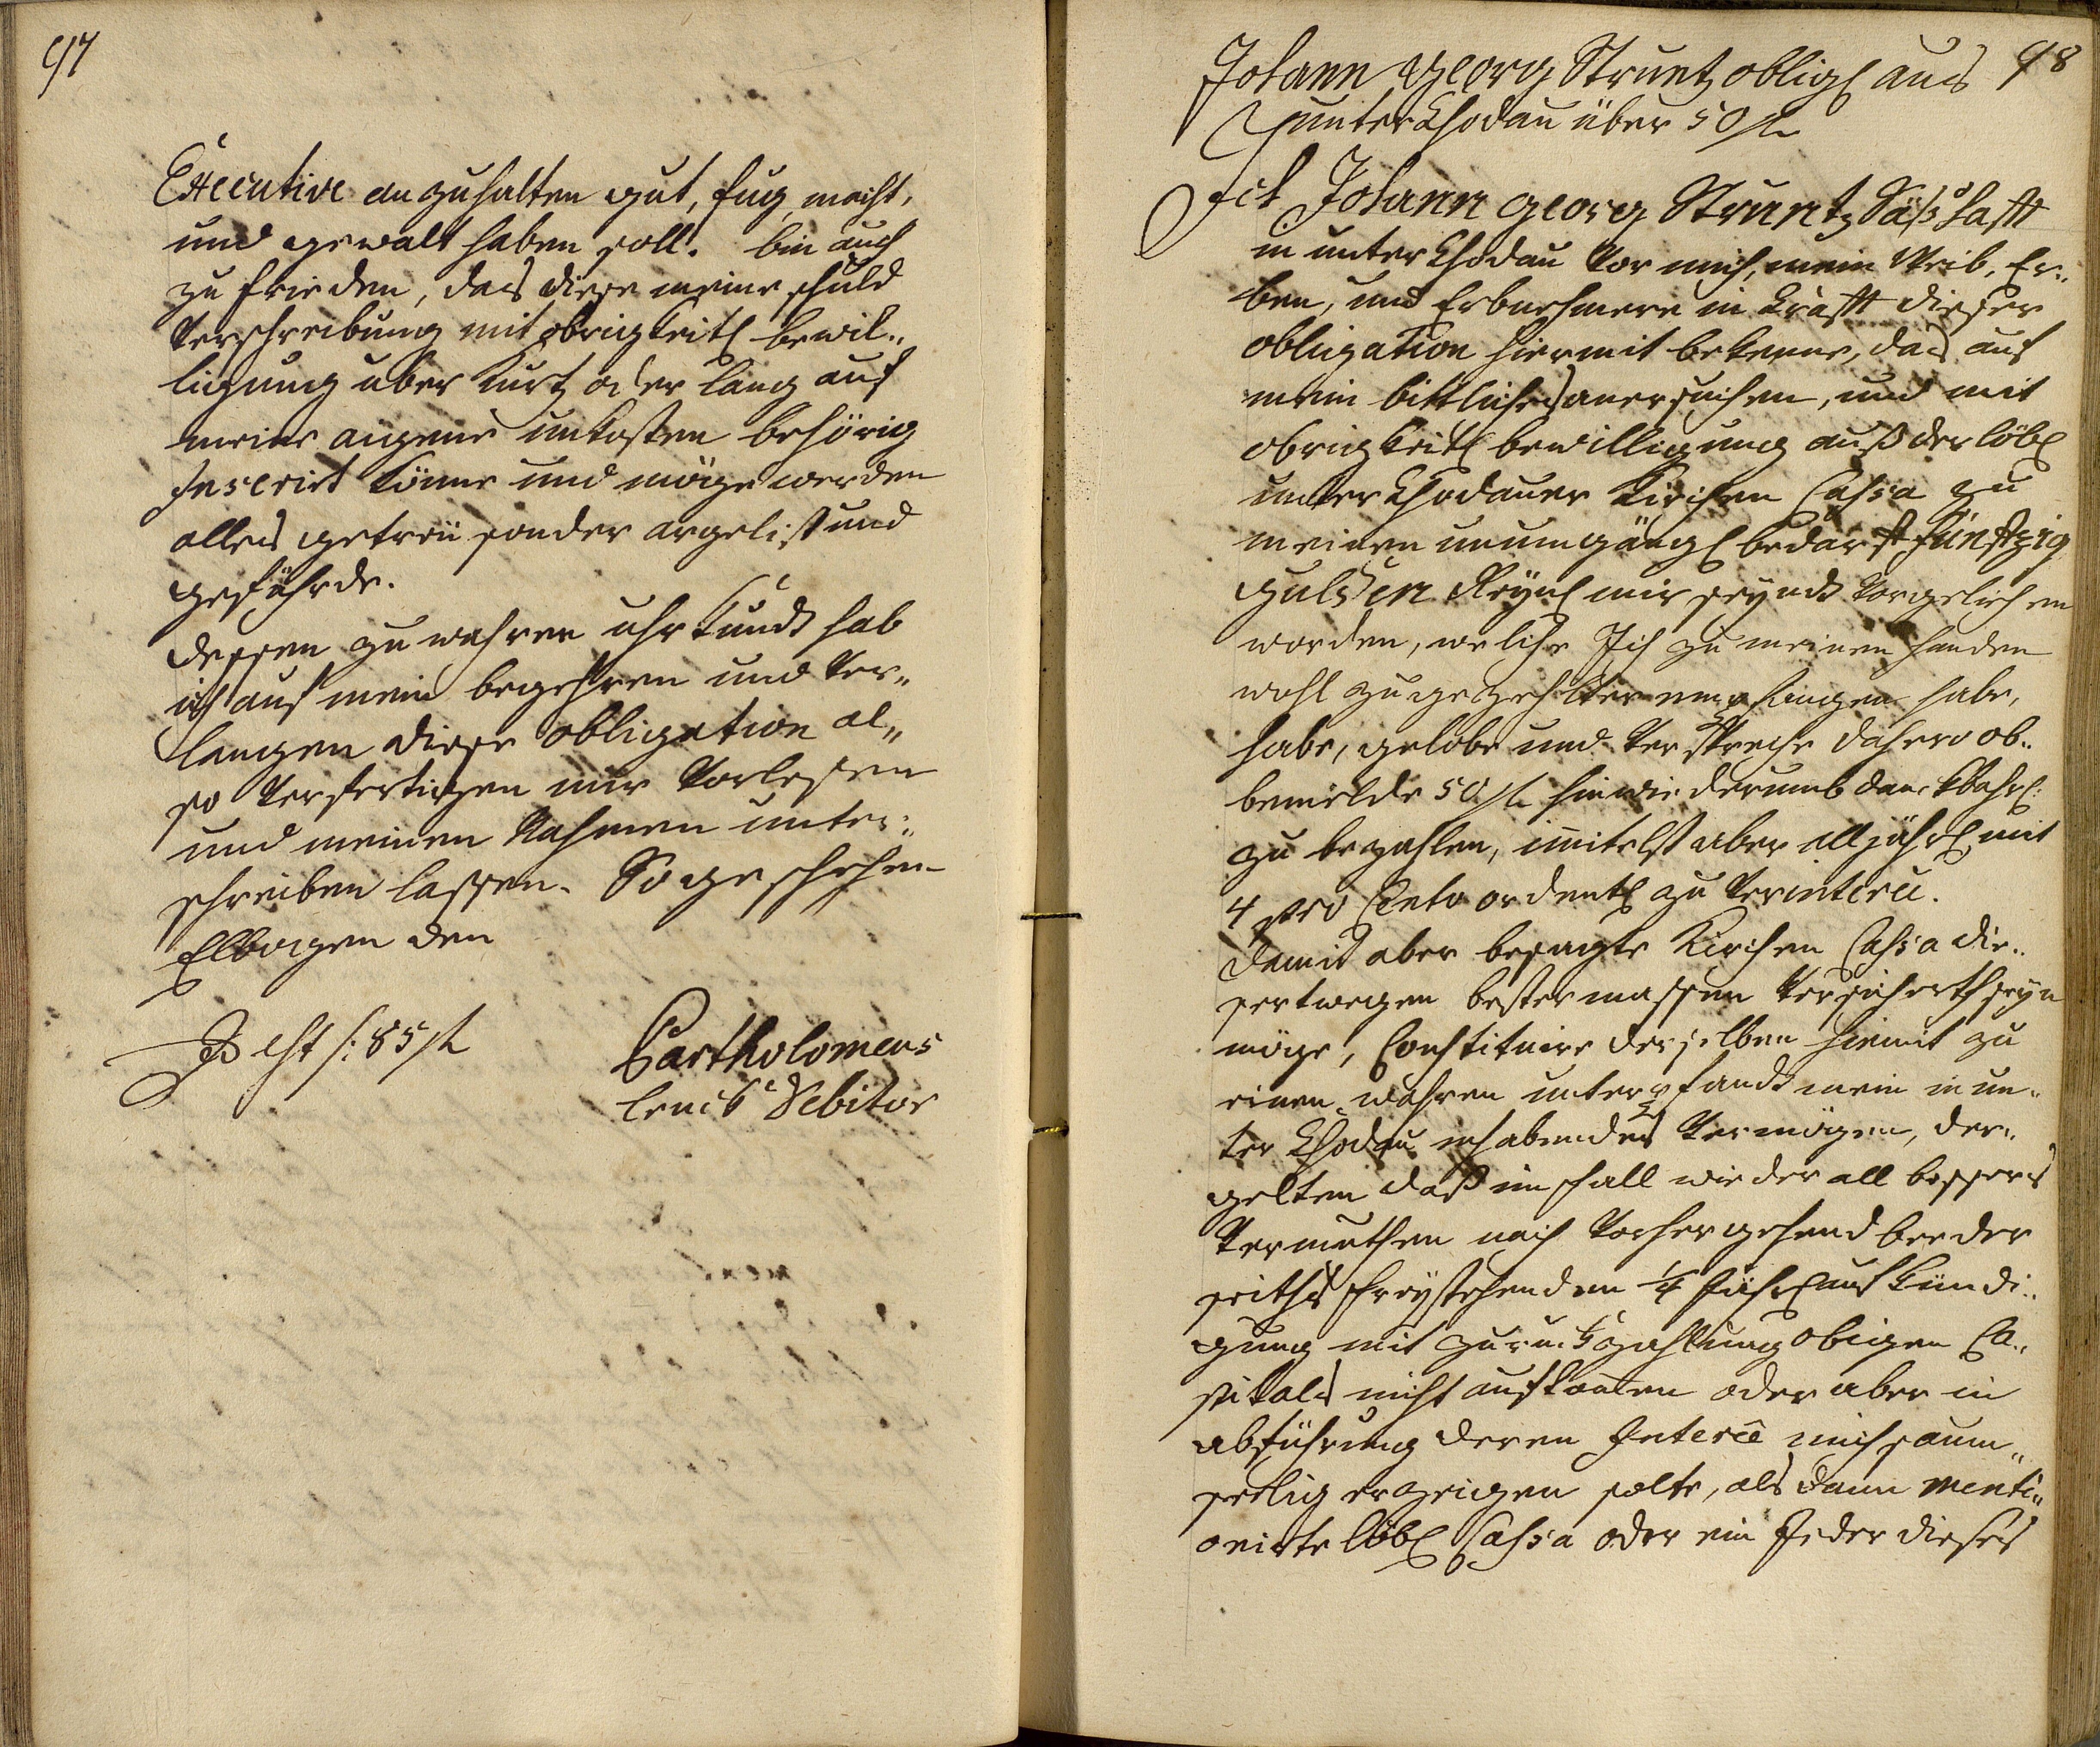 97
Executive anzuhalten gut, fug, macht,
und gewalt haben soll. bin auch
zu frieden, das diese meine schuld
verschreibung mit obrigkeitl bewil„
ligung über kurtz oder lang auf
meine aigene unkosten behörig
Inserirt könne und möge werden
alles getreü sonder argelist und
gefährde.
dessen zu wahrer uhrkundt hab
ich auf mein begehren und ver„
langen diese obligation al„
so verfertigen mir vorlesen
und meinen Nahmen unter„
schreiben lassen. So geschehen
Elbogen den
Id est /: 85 fl
Bartholomeus
Debitor
98
Johann Georg Struntz oblig aus
unter Chodau über 50 fl
Ich Johann georg Struntz Säßhafft
in unter Chodau vor mich, mein Weib, Er„
ben, und Erbnehmere in krafft dieser
obligation hiermit bekenne, das auf
mein bittliches anersuchen, und mit
obrigkeitl bewilligung auß der löbl
unter Chodauer Kirchen Cassa zu
meinen unumgängl bedarff fünffzig
gulden Reynl mir seyndt vorgeliehen
worden, welche Ich zu meinen handen
wohl zugezehlter empfangen habe,
habe, gelobe und verspreche dahero ob„
bemelde 50 fl hinwiederumb danckbahrl:
zu bezahlen, imitelst aber alljährl mit
4 pro Cento ordentl zu verinteriu.
damit aber besagte Kirchen Cassa die„
sertwegen bestermassen versicherth seyn
möge, Constituire derselben hiemit zu
einen wahren unterpfandt mein in un„
ter Chodau inhabendes vermögen, der„
gelten daß im fall wieder all bessers
vermuthen nach vorhergehend beeder
seiths freystehenden 1/4 Jährl aufkündi„
gung mit zuruckzahlung obigen Ca„
pitals nicht aufkommen oder aber in
abführung deren Interée mich saum„
seelig erzeigen solte, als dann menti„
onirte löbl Cassa oder ein Jeder dieses